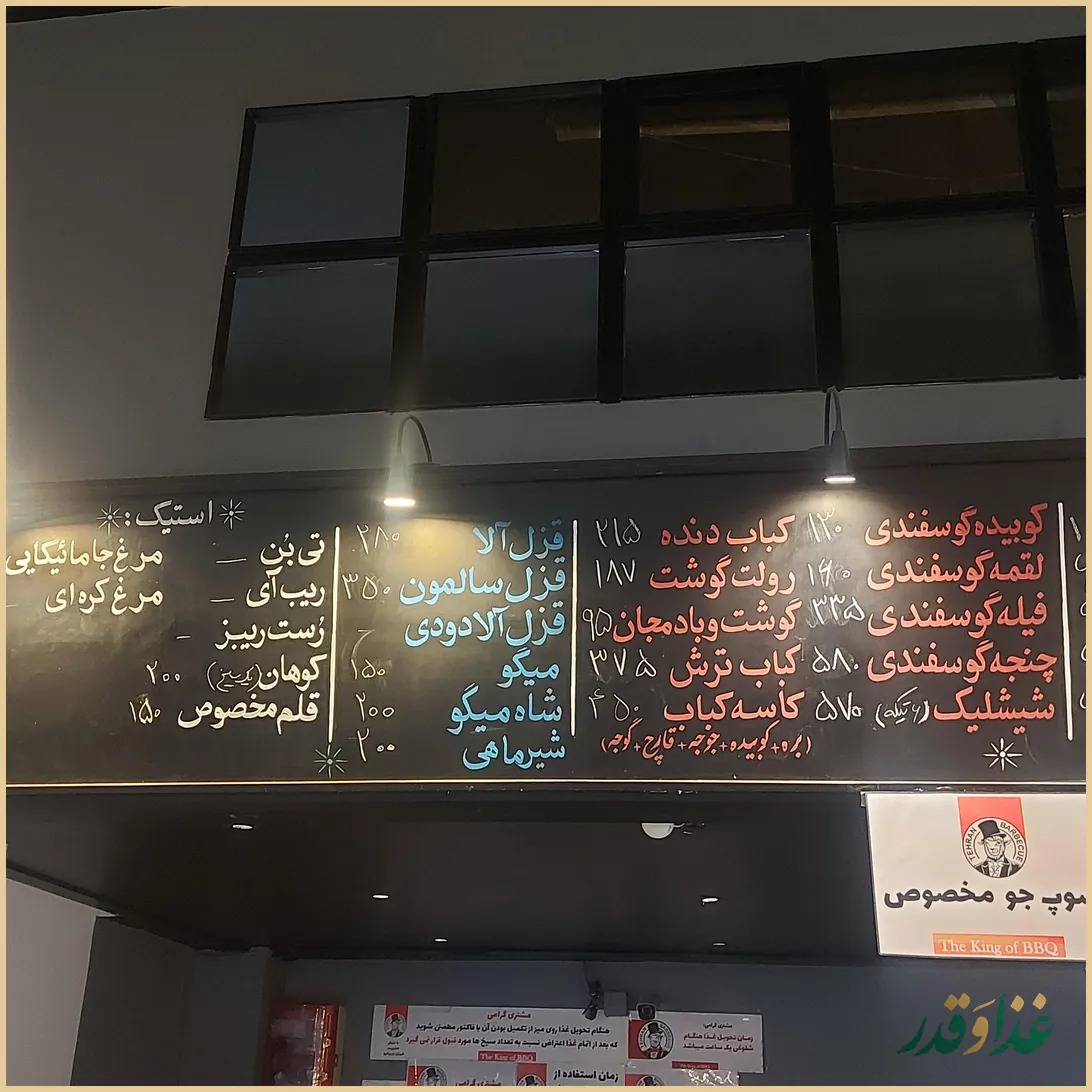 کوبیده گوسفندی ۱۳۰
لقمه گوسفندی ۱۹۰
فیله گوسفندی ۳۳۵
چنجه گوسفندی ۵۸۰
شیشلیک (۶ تیکه) ۵۷۰
کباب دنده ۲۱۵
رولت گوشت ۱۸۷
گوشت و بادمجان ۹۵
کباب ترش ۳۷۵
کاسه کباب ۴۵۰
(بره + کوبیده + جوجه + قارچ + گوجه)
قزل آلا ۲۸۰
قزل سالمون ۳۵۰
قزل آلا دودی
میگو ۱۵۰
شاه میگو ۲۰۰
شیر ماهی ۲۰۰
استیک:
تی بُن _
ریب آی _
رُست ریبز _
کوهان ۲۰۰
قلم مخصوص ۱۵۰
مرغ جامائیکایی
مرغ کره ای _
TEHRAN BARBECUE
سوپ جو مخصوص
The King of BBQ
مشتری گرامی
هنگام تحویل غذا روی میز از تکمیل بودن آن با فاکتور مطمئن شوید
که بعد از اتمام غذا اعتراض نسبت به تعداد سیخ ها مورد قبول قرار نمی گیرد
The King of BBQ
مشتری گرامی:
زمان تحویل غذا هنگام
شلوغی یک ساعت میباشد
مشتری گرامی
زمان استفاده از
غذا و قدر